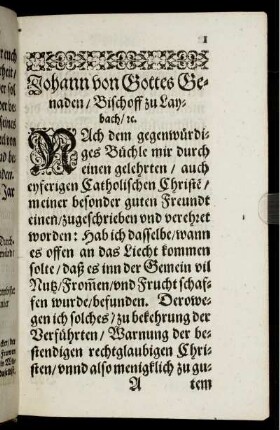 1
Johann von Gottes Ge-
naden / Bischoff zu Lay-
bach / ꝛc.
NAch dem gegenwürdi-
ges Büchle mir durch
einen gelehrten / auch
eyferigen Catholischen Christē /
meiner besonder guten Freundt
einen / zugeschrieben vnd verehret
worden: Hab ich dasselbe / wann
es offen an das Liecht kommen
solte / daß es inn der Gemein vil
Nutz / From̄en / vnd Frucht schaf-
fen wurde / befunden. Derowe-
gen ich solches / zu bekehrung der
Verführten / Warnung der be-
stendigen rechtglaubigen Chri-
sten / vnnd also menigklich zu gu-
A tem